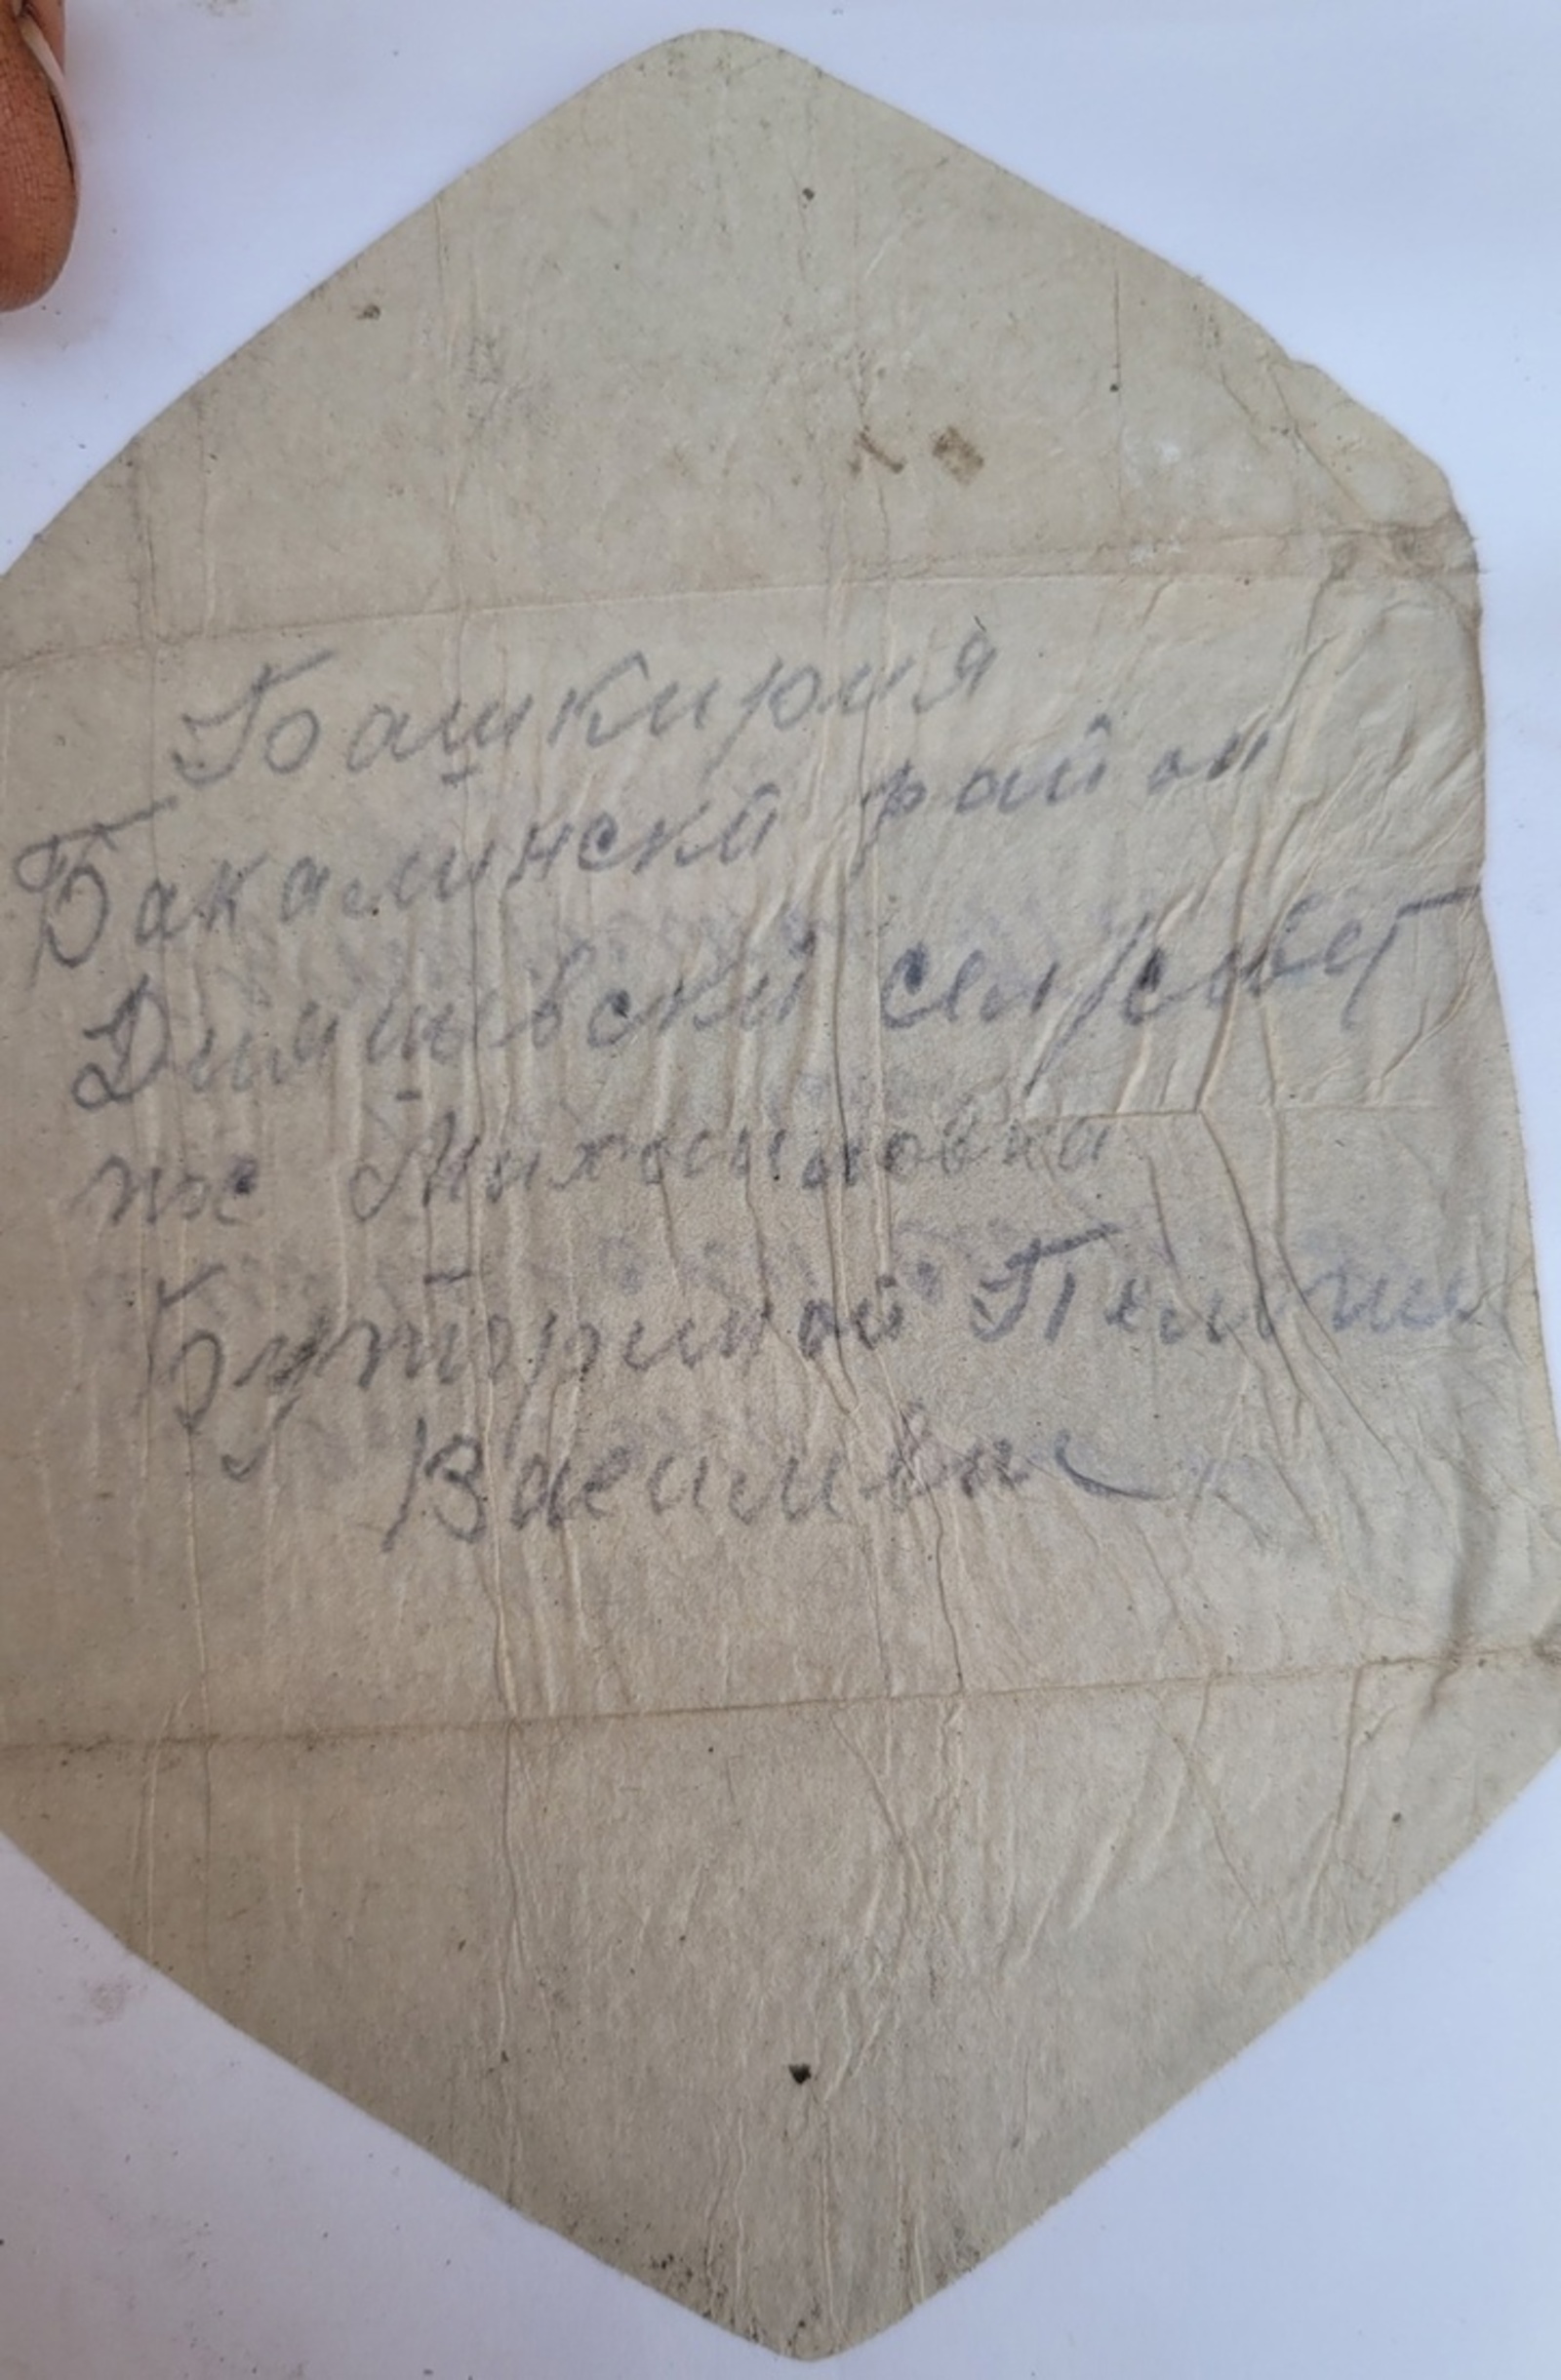 Башкирия
Бакалинскй район
Дияшевский сельсовет
Михайловка
Буториной Пелагии
Васильвн